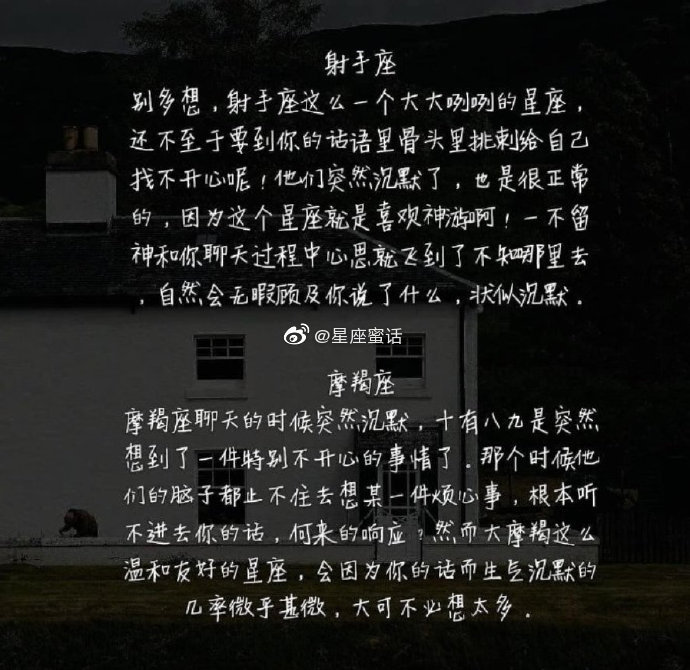 射手座
别多想，射手座这么一个大大咧咧的星座，
还不至于要到你的话语里骨头里挑刺给自己
找不开心呢！他们突然沉默了，也是很正常
的，因为这个星座就是喜欢神游啊！一不留
神和你聊天过程中心思就飞到了不知哪里去
，自然会无暇顾及你说了什么，状似沉默．
@星座蜜话
摩羯座
摩羯座聊天的时候突然沉默，十有八九是突然
想到了一件特别不开心的事情了。那个时候他
们的脑子都止不住去想某一件烦心事，根本听
不进去你的话，何来的响应？然而大摩羯这么
温和友好的星座，会因为你的话而生气沉默的
几率微乎甚微，大可不必想太多．